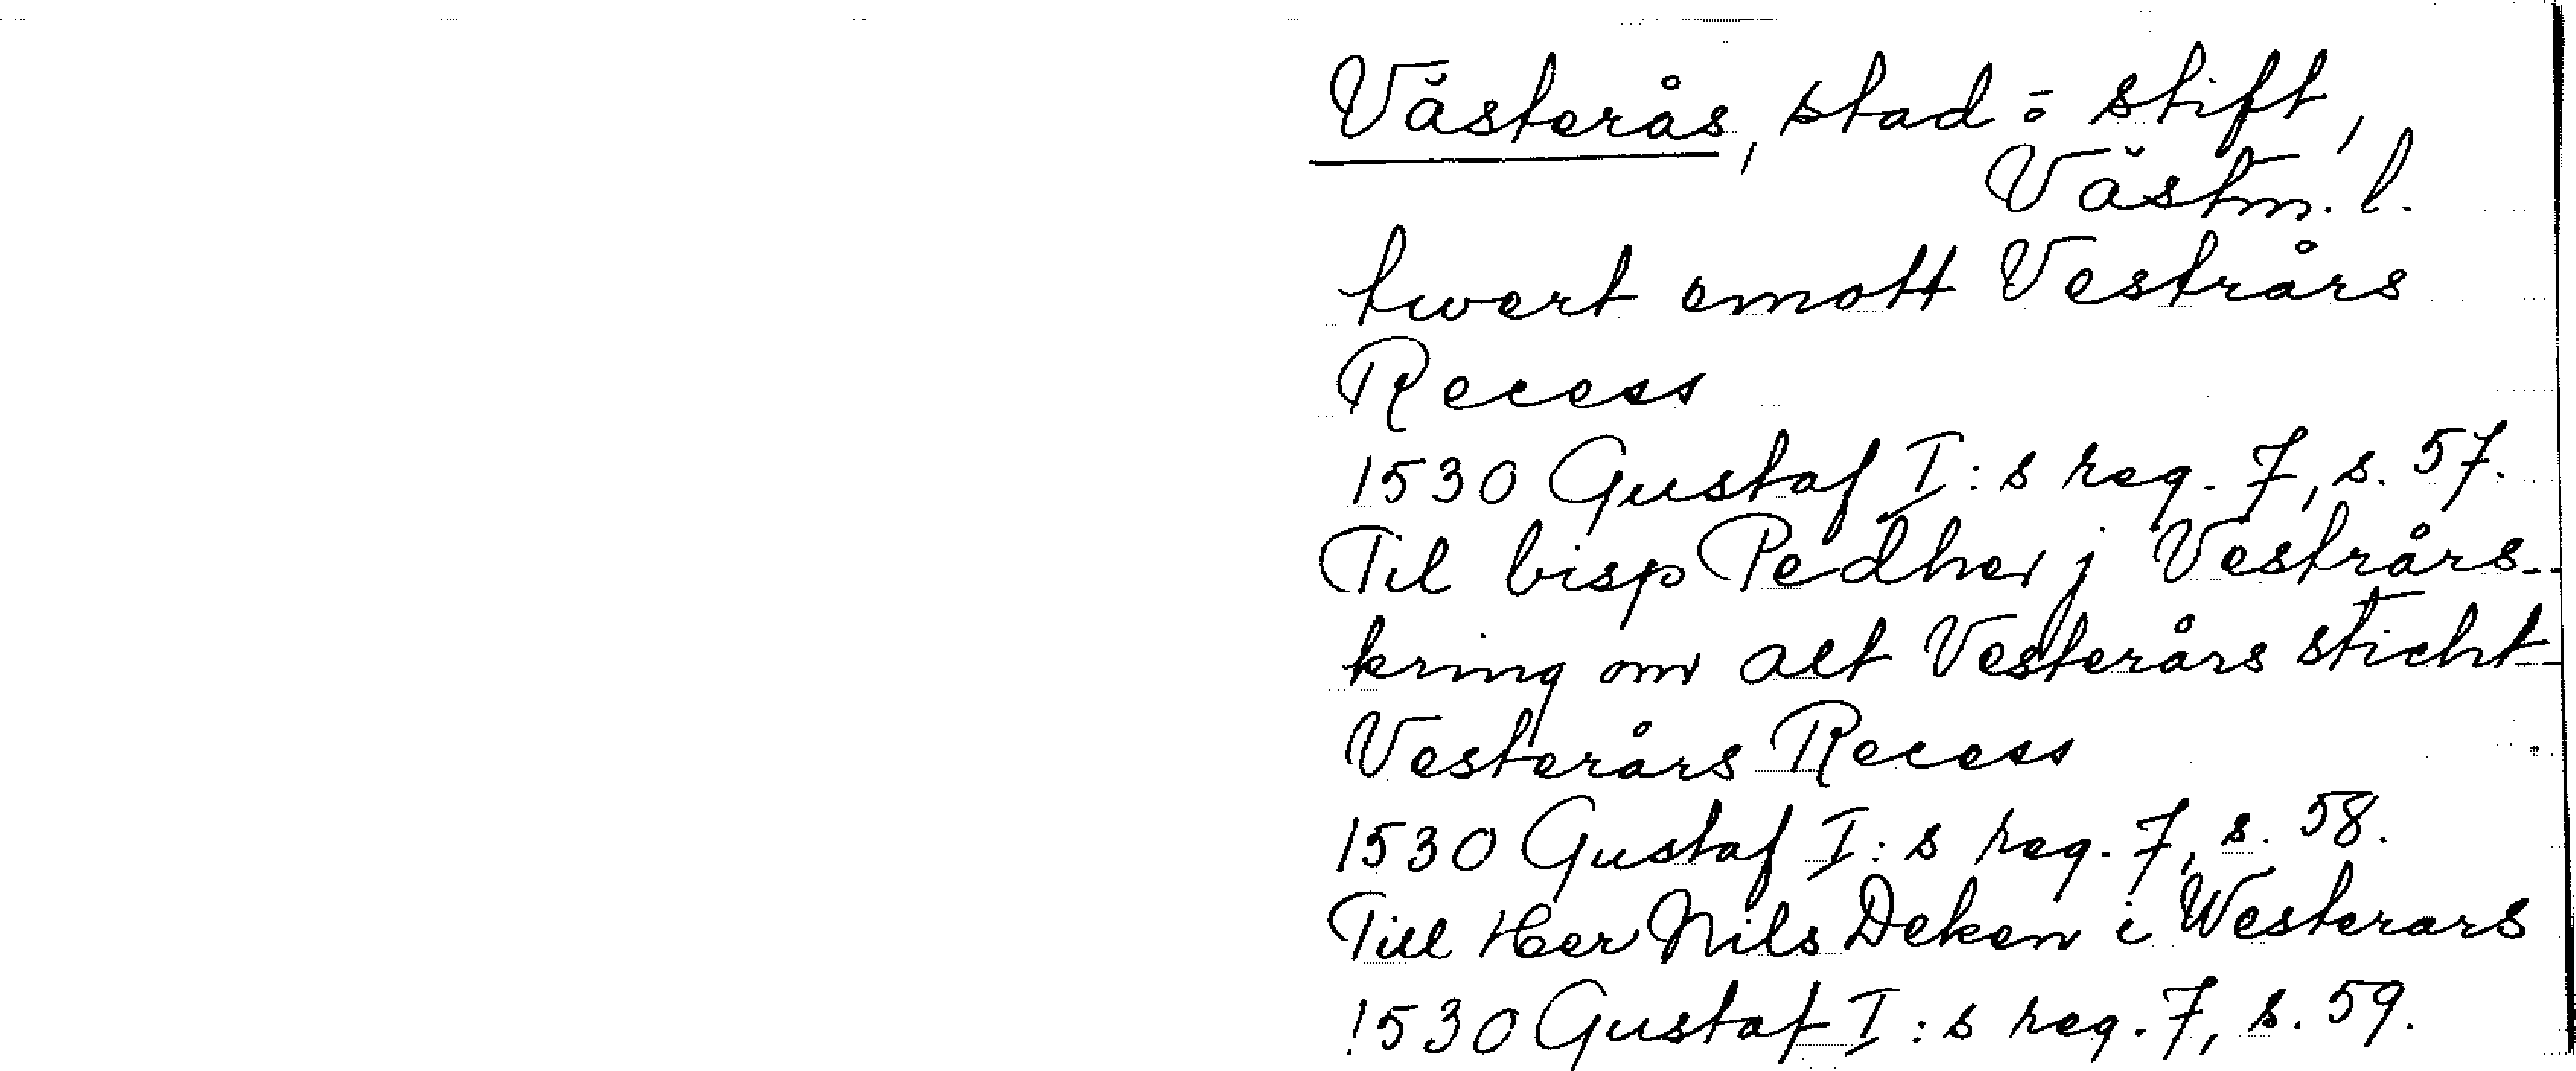 Västerås, stad o. stift,
Västm. l.
twert emott Vestrårs
Recess
1530 Gustaf I:s reg. 7, s. 57.
Til bisp Pedher j Vestrårs--
kring om alt Vesterårs sticht-
Vesterårs Recess
1530 Gustaf I:s reg. 7, s. 58.
Till Her Nils Deken i Westerars
1530 Gustaf I:s reg. 7, s. 59.